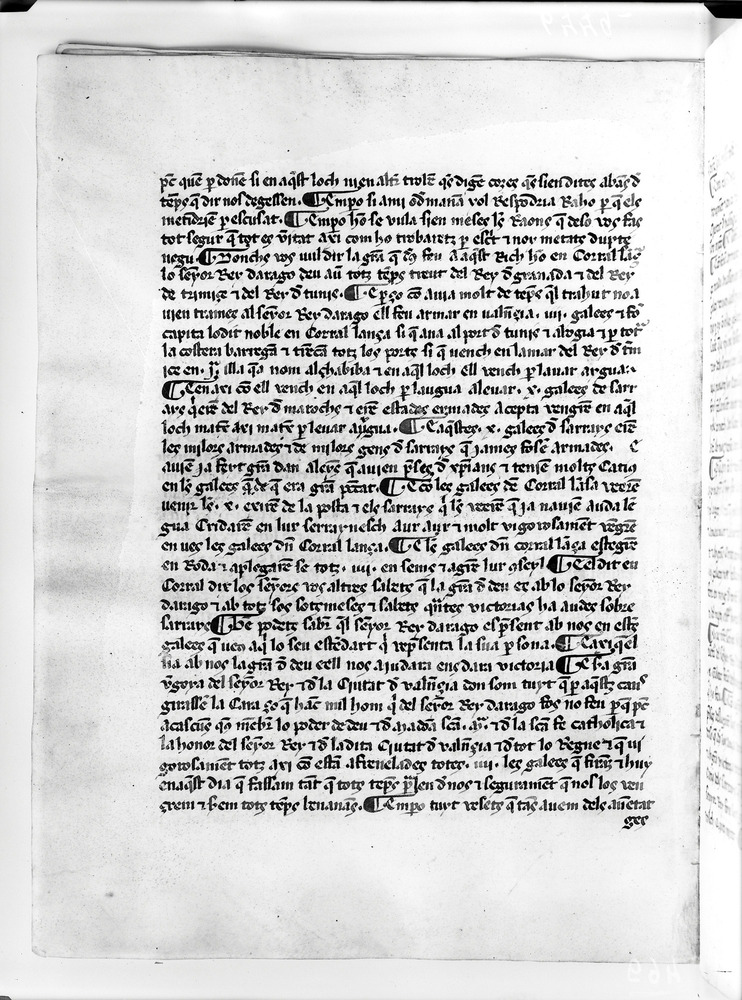 pc̄ que ꝑ done si en aq̄st loch men altr̄ trolē q̄s dige coses q̄ sien dites abās đ
tēps q̄ dir nos degessen. ¶ Empo si ami ođmanā vol Respōdria Raho ꝑ q̄ els
metēdriē ꝑ escusat. ¶ Empo hō se vula sien meses les Raons q̄ deso vos fas
tot segur q̄ tot es v̄itat axi com ho trobarets ꝑ escr̄t ⁊ noy metats dupte
negu ¶ Donchs vos vull dir la grā q̄ đs feu a aq̄st Rich hō en Corral lāsa
lo seyor Rey darago deu au̅ totz tēps treut del Rey đ granada ⁊ del Rey
de trimiçe ⁊ del Rey đ tunis. ¶ E ꝑ ço cō auia molt de tēps q̄l trahut no a
uien trames al seyor Rey darago ell feu armar en valn̄çia .iiij. galees ⁊ fo
capita lodit noble en Corral lança si q̄ ana al port đ tunis ⁊ abogia ⁊ ꝑ tota
la costera barreyā ⁊ trēcā totz los ports si q̄ uench en lamar del Rey đ trim
içe en .jᵃ. illa q̄a nom alchabiba ⁊ en aq̄l loch ell vench ꝑ leuar aygua.
¶ E en axi cō ell vench en aq̄l loch ꝑ laugua aleuar .x. galees de sarr
ays q̄ erē del Rey đ marochs ⁊ erē estades armades a cepta vengrē en aq̄l
loch matex axi matex ꝑ leuar aygua. ¶ E aq̄stes .x. galees đ sarrays erē
les milors armades ⁊ de milors gens đ sarrays q̄ james fosē armades. E
auiē ja feyt grā dan aleys q̄ auien pses đ xp̄ians ⁊ tenie moltz Catius
en les galees q̄ de q̄ era grā peccat. ¶ E cō les galees de Corral lāsa veerē
venir les .x. exirē de la posta ⁊ els sarrays q̄ les veerē q̄ ja nauiē auda lē
gua Cridarē en lur serraynesch aur aur ⁊ molt vigorosamēt vēgrē
en ues les galees dn̄ Corral lança. ¶ E les galees dn̄ corral lāça estegrē
en Roda ⁊ aplegarē se totz .iiij. en sems ⁊ agrē lur 9seyl ¶ E el dit en
Corral dix los seyors vos altres sabets q̄ la grā đ deu es ab lo seyor Rey
darago ⁊ ab totz sos sotsmeses ⁊ sabets qn̄tes victorias ha audes sobre
sarrays ¶ Be podets sabr̄ q̄l seyor Rey darago es p̄sent ab nos en estes
galees q̄ ueus aq̄i lo seu estēdart q̄ rep̄senta la sua ꝑsona. ¶ E axi q̄el
sia ab nos la grā đ deu e ell nos ajudara ens dara victoria ¶ E sia grā
v̄goya del seyor Rey ⁊ đ la Ciutat đ valn̄çia don som tuyt q̄ ꝑ aq̄stz cans
girassē la Cara ço q̄ hac mil hom q̄ del seyor Rey darago fos no feu ꝑ q̄ pc̄
a cascūs q̄us mēbr̄ lo poder de deu ⁊ đ madōa scā .mᵃ. ⁊ đ la scā fe catholica ⁊
la honor del seyor Rey ⁊ đ la dita Ciutat đ valn̄çia ⁊ đ tot lo Regne ⁊ q̄ ui
gorosamēt totz axi cō estā afrenelades totes .iiij. les galees q̄ firam ⁊ huy
en aq̄st dia q̄ fassam tāt q̄ totz tēps p̄len đ nos ⁊ seguramēt q̄ nos los uen
çrem ⁊ sem totz tēps benanans. ¶ Empo tuyt vesets q̄ tās auem dels au̅tat
ges